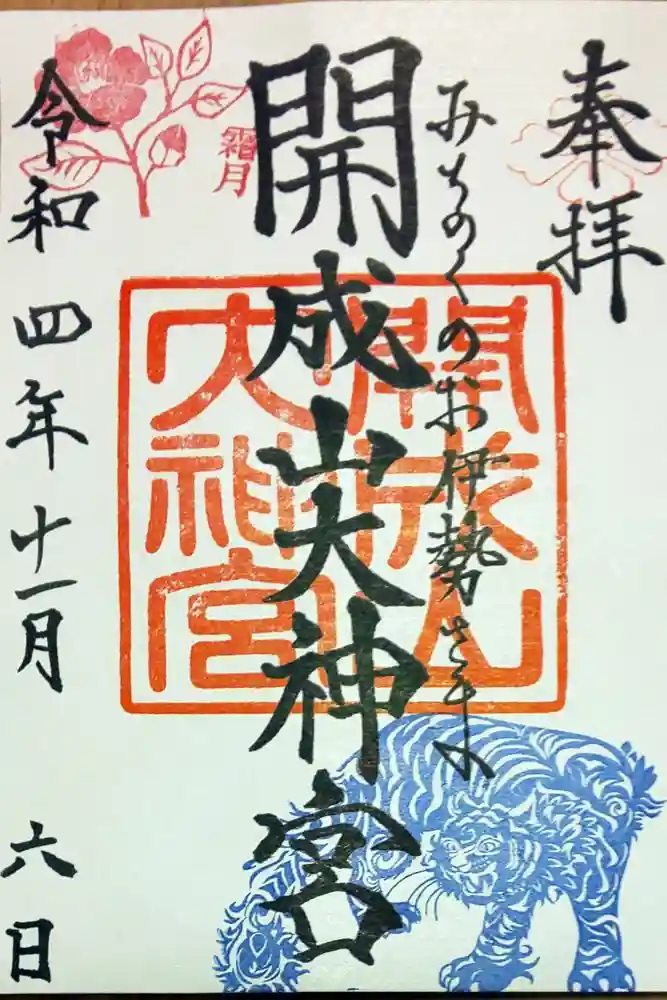 奉拝
みちのくのお伊勢さま
開成山大神宮
開成山
大神宮
霜月
令和四年十一月六日